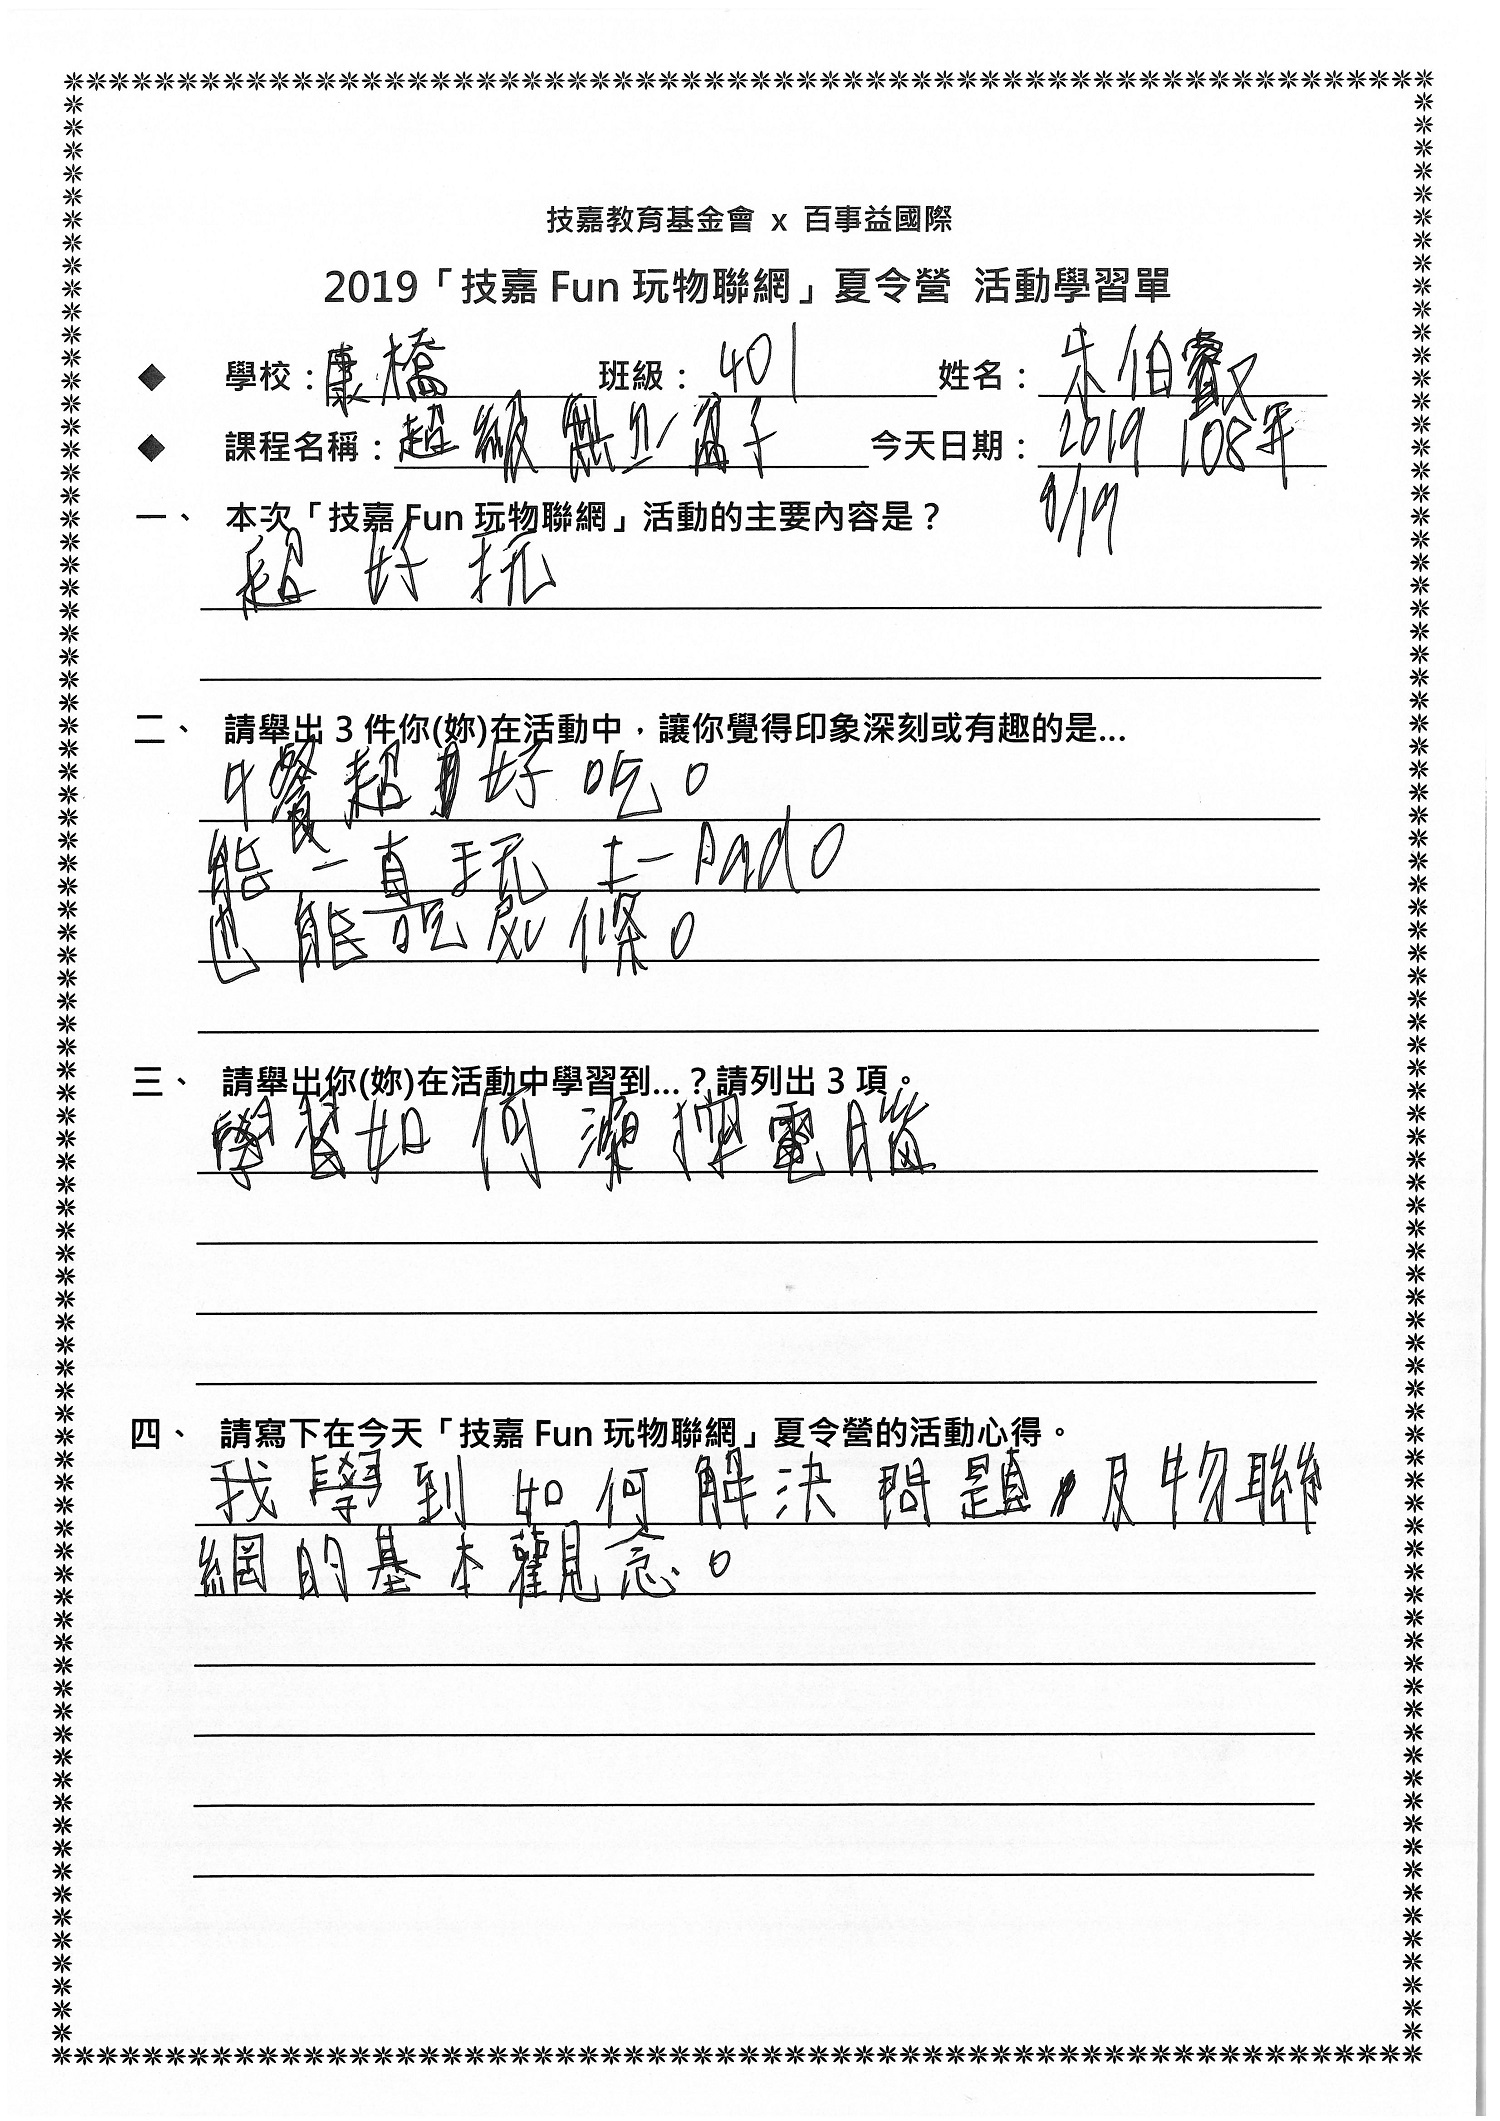 技嘉教育基金會 x 百事益國際
2019「技嘉 Fun 玩物聯網」夏令營 活動學習單
◆ 學校：康橋 班級：401 姓名：朱伯叡
◆ 課程名稱：超級無 子 今天日期：2019 108年
8/19
一、 本次「技嘉 Fun 玩物聯網」活動的主要內容是？
超好玩
二、 請舉出 3 件你(妳)在活動中，讓你覺得印象深刻或有趣的是...
中餐超好吃。
能一直玩 Pad。
也能 條。
三、 請舉出你(妳)在活動中學習到...？請列出 3 項。
學習如何 電腦
四、 請寫下在今天「技嘉 Fun 玩物聯網」夏令營的活動心得。
我學到如何解決問題，及物聯
網的基本觀念。